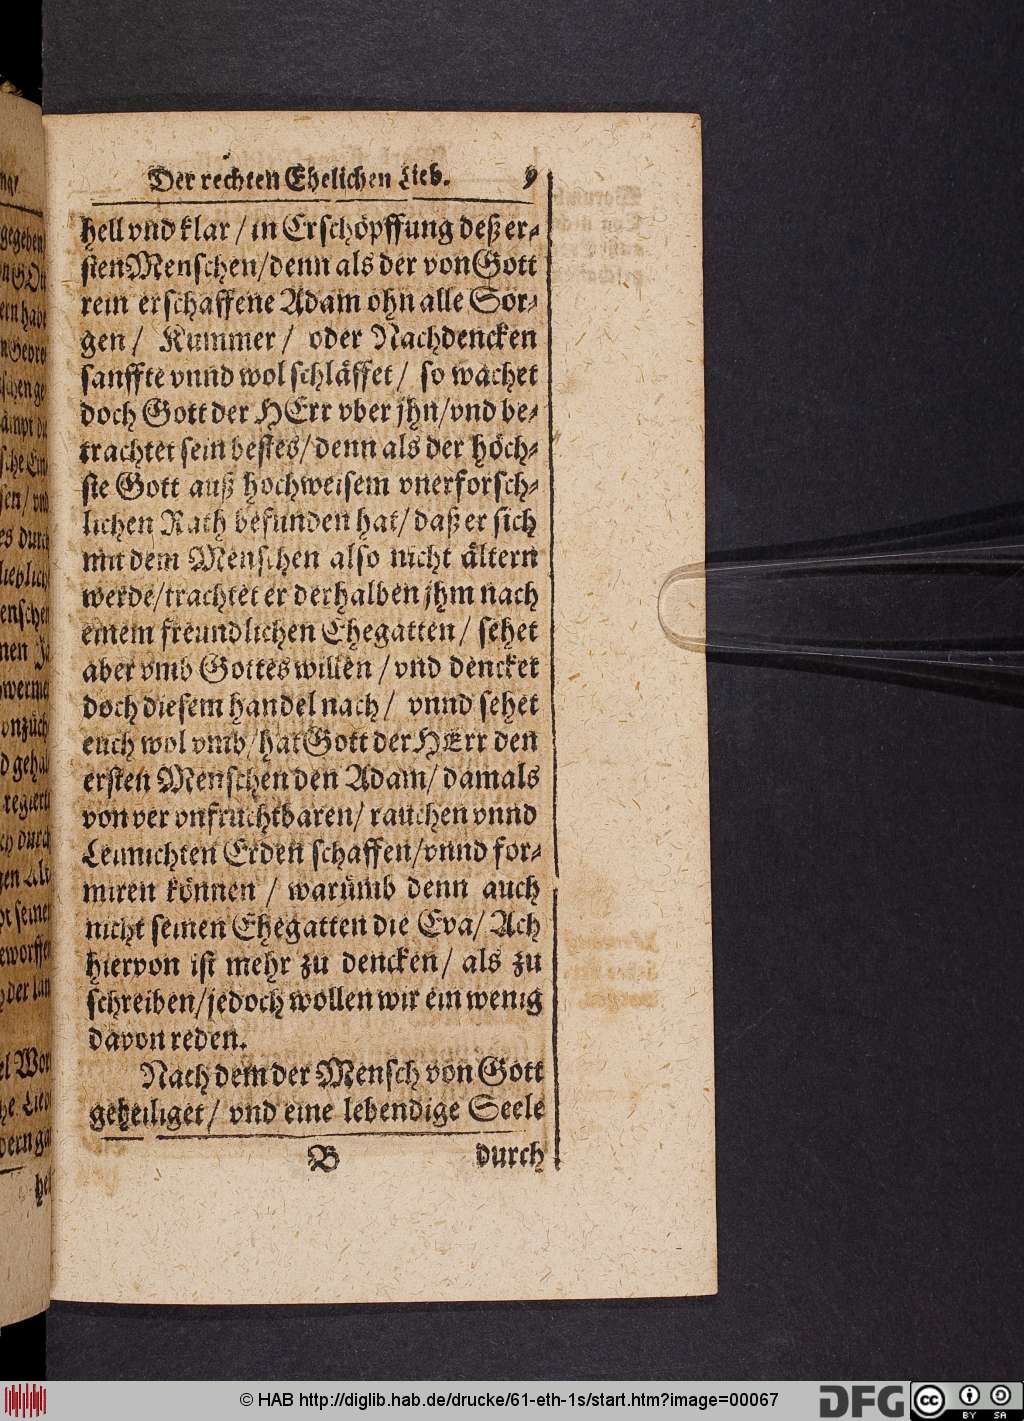 Der rechten Ehelichen Lieb. 9
hell vnd klar / in Erschöpffung deß er-
sten Menschen/denn als der von Gott
rein erschaffene Adam ohn alle Sor-
gen / Kummer / oder Nachdencken
sanffte vnnd wol schläffet / so wachet
doch Gott der HErr vber jhn/vnd be-
trachtet sein bestes/denn als der höch-
ste Gott auß hochweisem vnerforsch-
lichen Rath befunden hat/daß er sich
mit dem Menschen also nicht ältern
werde/trachtet er derhalben jhm nach
einem freundlichen Ehegatten / sehet
aber vmb Gottes willen / vnd dencket
doch diesem handel nach / vnnd sehet
euch wol vmb/hat Gott der HErr den
ersten Menschen den Adam/ damals
von der vnfruchtbaren/ rauchen vnnd
Leimichten Erden schaffen/vnnd for-
miren können / warumb denn auch
nicht seinen Ehegatten die Eva/ Ach
hiervon ist mehr zu dencken/ als zu
schreiben/jedoch wollen wir ein wenig
davon reden.
Nach dem der Mensch von Gott
geheiliget / vnd eine lebendige Seele
B durch
© HAB http://diglib.hab.de/drucke/61-eth-1s/start.htm?image=00067
DFG
cc BY SA